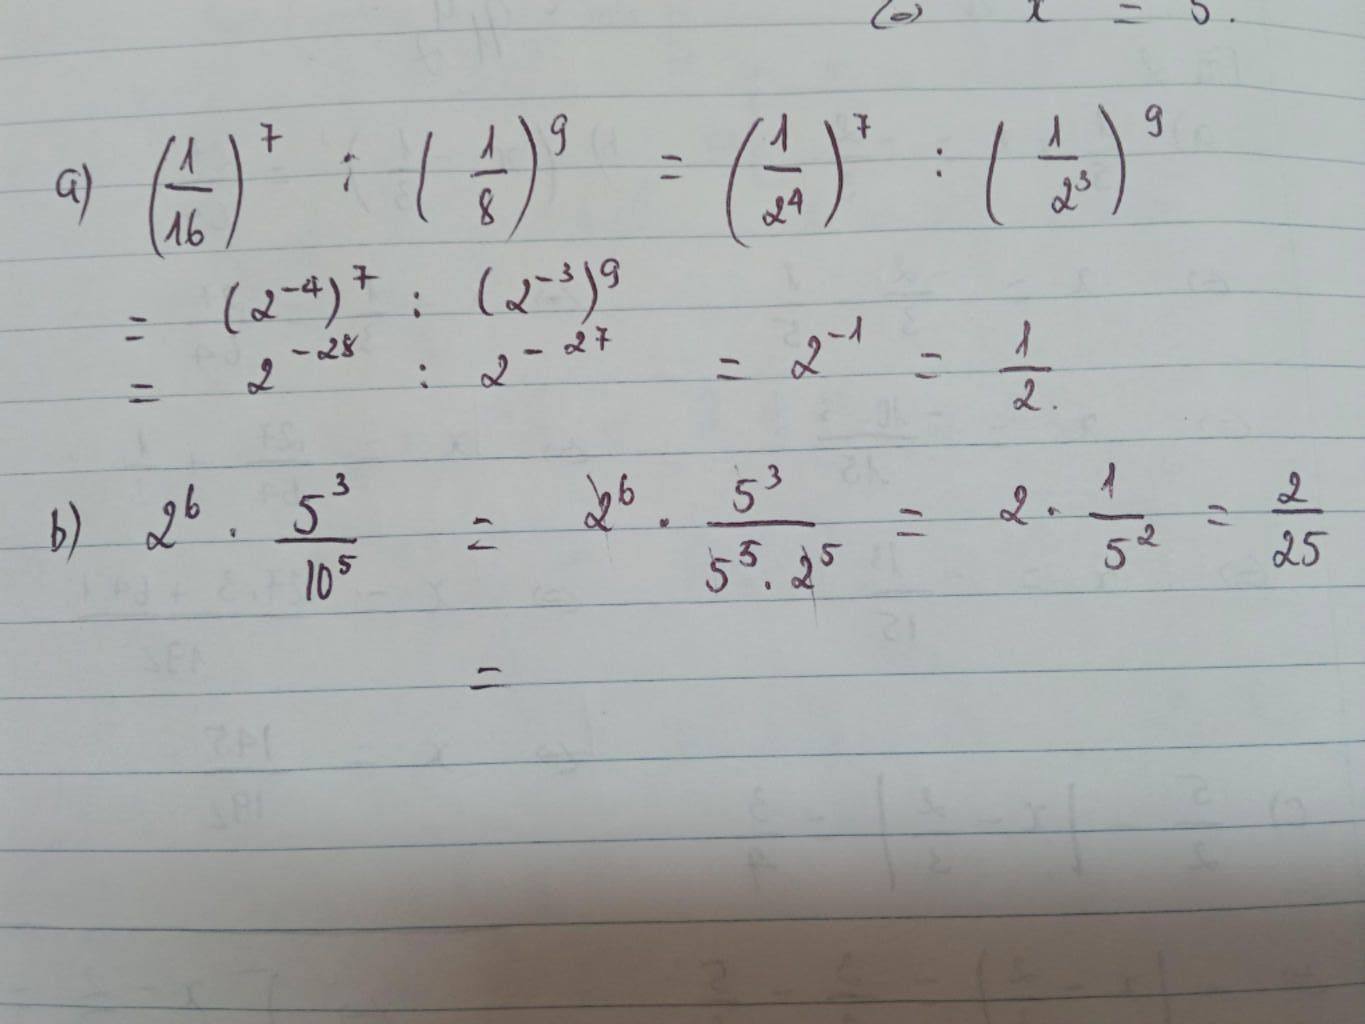 ⇔ x = 5.
a) (1/16)^7 : (1/8)^9 = (1/2^4)^7 : (1/2^3)^9
= (2^-4)^7 : (2^-3)^9
= 2^-28 : 2^-27 = 2^-1 = 1/2.
b) 2^6 . 5^3/10^5 = 2^6 . 5^3/(5^5 . 2^5) = 2 . 1/5^2 = 2/25
=